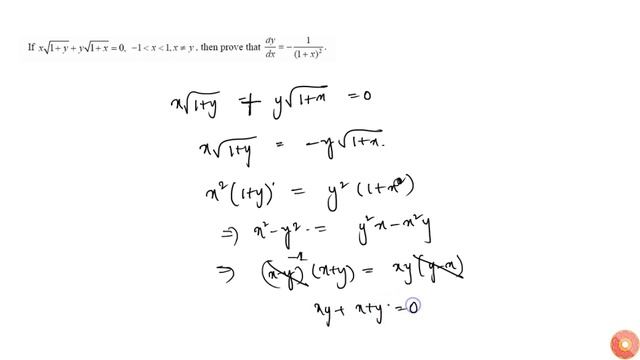 If x√(1+y) + y√(1+x) = 0, −1 < x < 1, x ≠ y, then prove that dy/dx = −1/(1+x)².
x√(1+y) + y√(1+x) = 0
x√(1+y) = −y√(1+x).
x²(1+y) = y²(1+x)
⇒ x² − y² = y²x − x²y
⇒ (x−y)⁻¹(x+y) = xy(y−x)
xy + x+y = 0